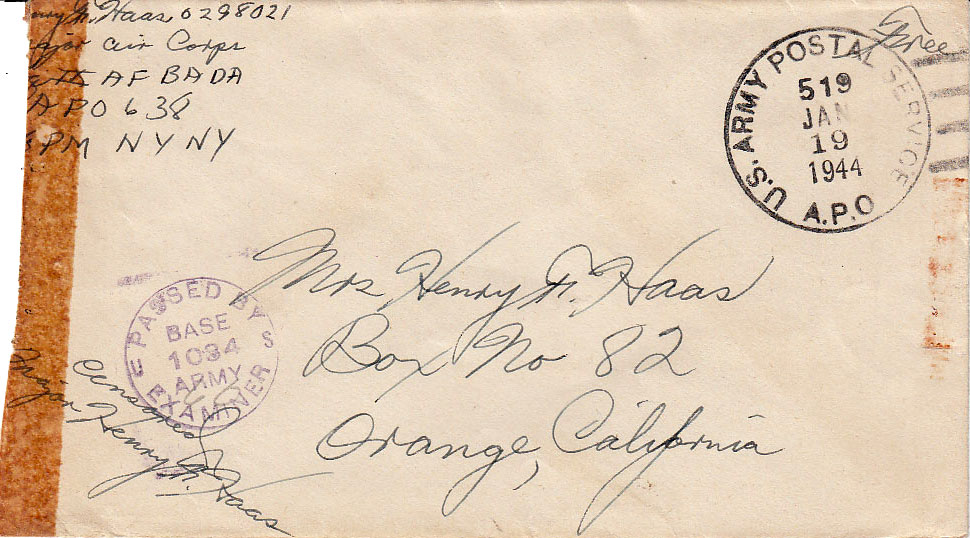 ry F. Haas 0298021
ajor air Corps
AF BADA
APO 638
PM NY NY
Free
U.S. ARMY POSTAL SERVICE
519
JAN
19
1944
A.P.O
Mrs Henry F. Haas
Box No 82
Orange, California
PASSED BY
BASE
1034
ARMY
EXAMINER
U S
Censored
Major Henry F. Haas